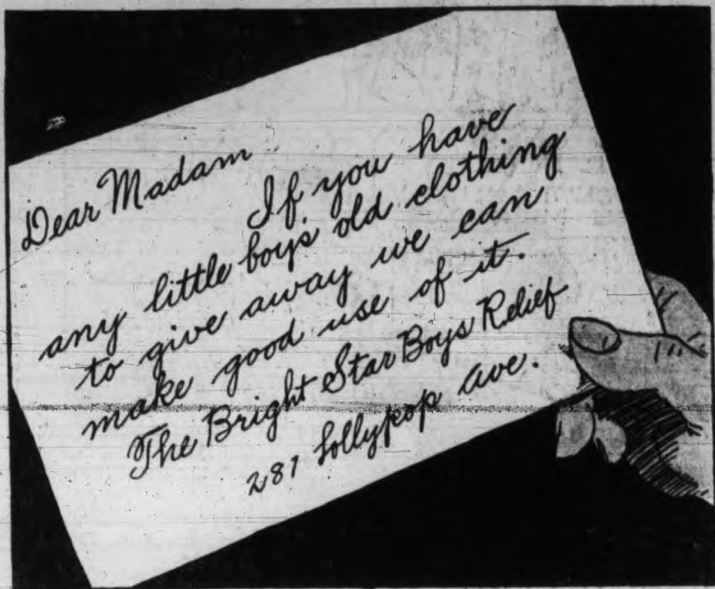 Dear Madam
If you have
any little boys' old clothing
to give away we can
make good use of it.
The Bright Star Boys Relief
287 Lollypop Ave.